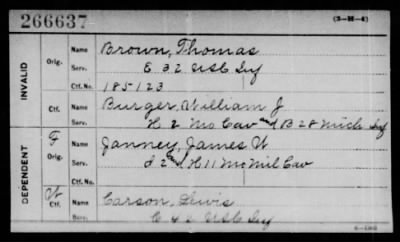 266637
(3-M-4)
INVALID
Orig.
Name Brown, Thomas
Serv. E 32 USC Inf
Ctf. No. 185123
Ctf.
Name Burger, William J
Serv. H 2 Mo Cav and B 28 Mich Inf
DEPENDENT
F
Orig.
Name Janney, James W
Serv. I 2 and H 11 Mo Mil Cav
Ctf. No.
W
Ctf.
Name Carson, Lewis
Serv. C 42 USC Inf